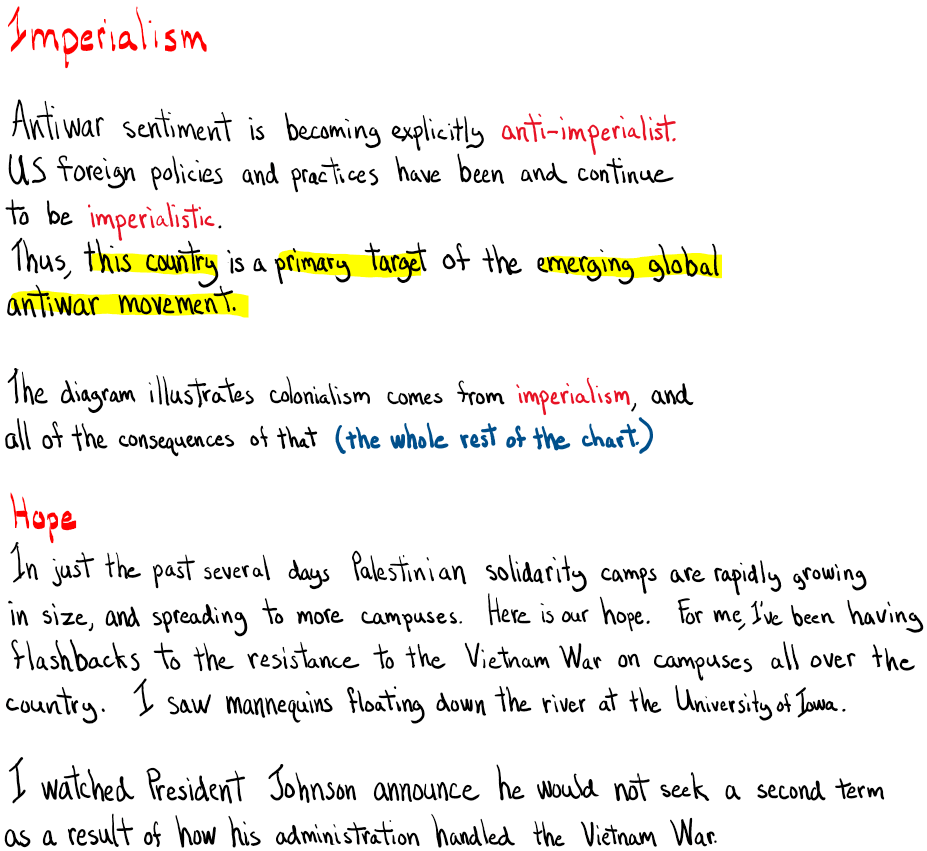 Imperialism
Antiwar sentiment is becoming explicitly anti-imperialist.
US foreign policies and practices have been and continue
to be imperialistic.
Thus, this country is a primary target of the emerging global
antiwar movement.
The diagram illustrates colonialism comes from imperialism, and
all of the consequences of that (the whole rest of the chart.)
Hope
In just the past several days Palestinian solidarity camps are rapidly growing
in size, and spreading to more campuses. Here is our hope. For me, I've been having
flashbacks to the resistance to the Vietnam War on campuses all over the
country. I saw mannequins floating down the river at the University of Iowa.
I watched President Johnson announce he would not seek a second term
as a result of how his administration handled the Vietnam War.